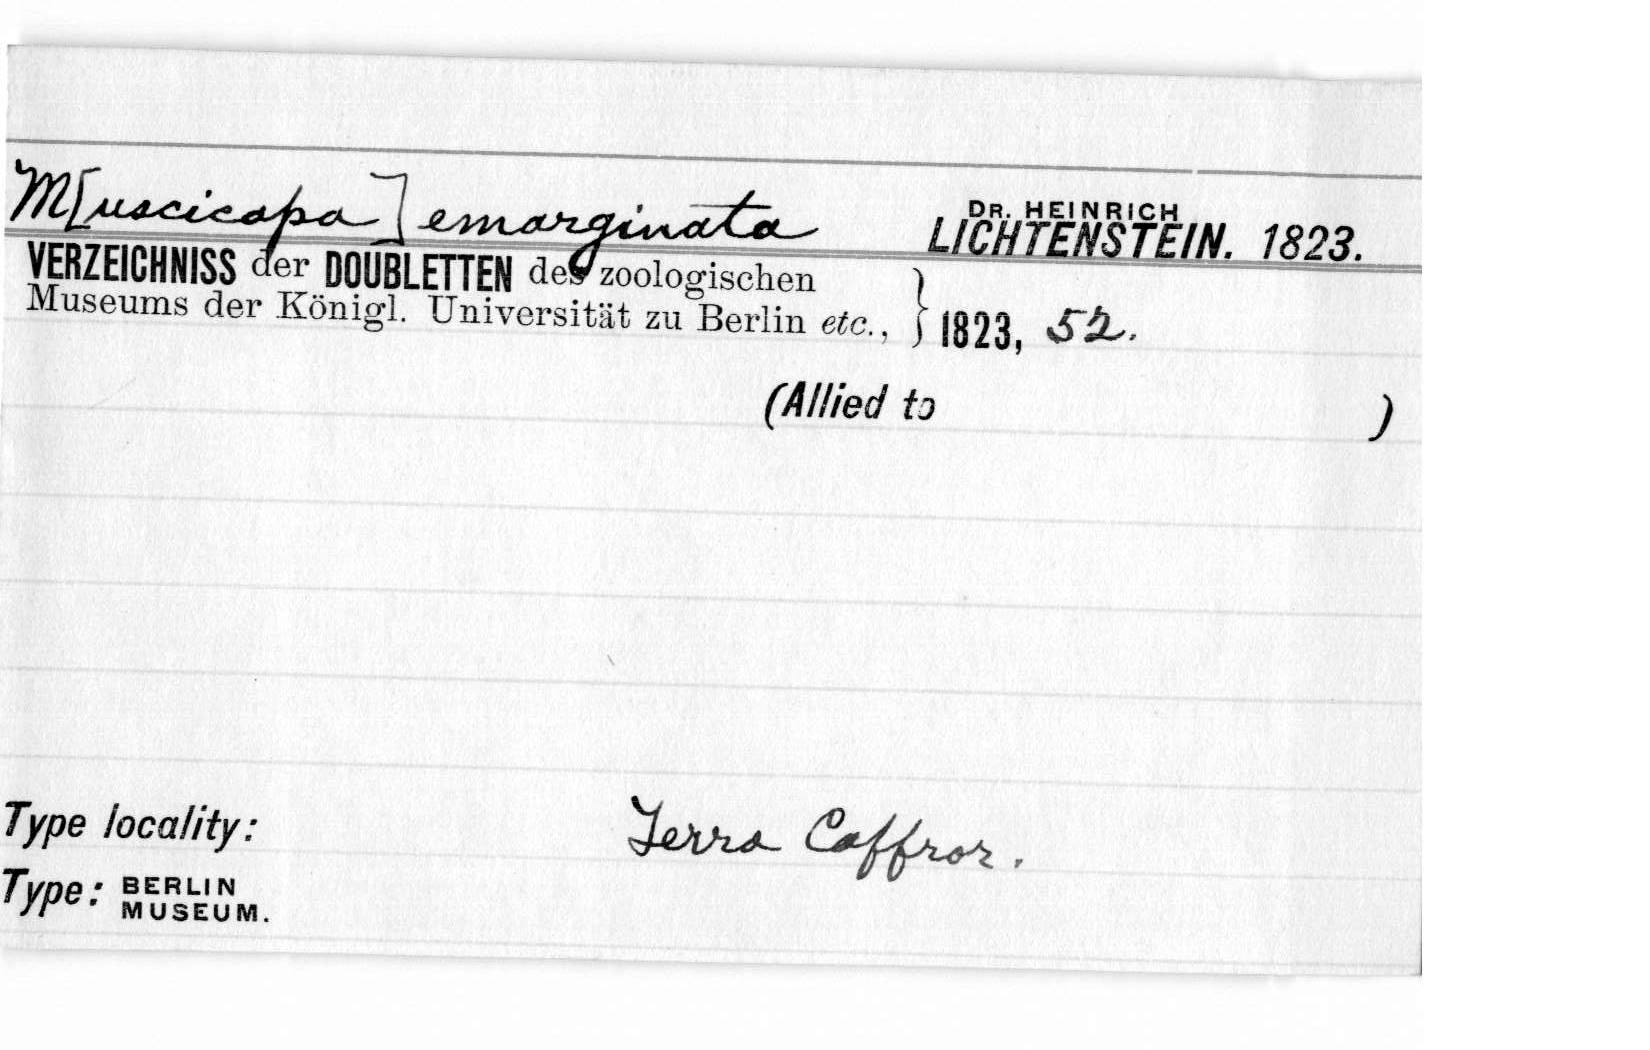 M[uscicapa] emarginata DR. HEINRICH LICHTENSTEIN. 1823.
VERZEICHNISS der DOUBLETTEN des zoologischen
Museums der Königl. Universität zu Berlin etc., } 1823, 52.
(Allied to )
Type locality: Terra Caffror.
Type: BERLIN MUSEUM.